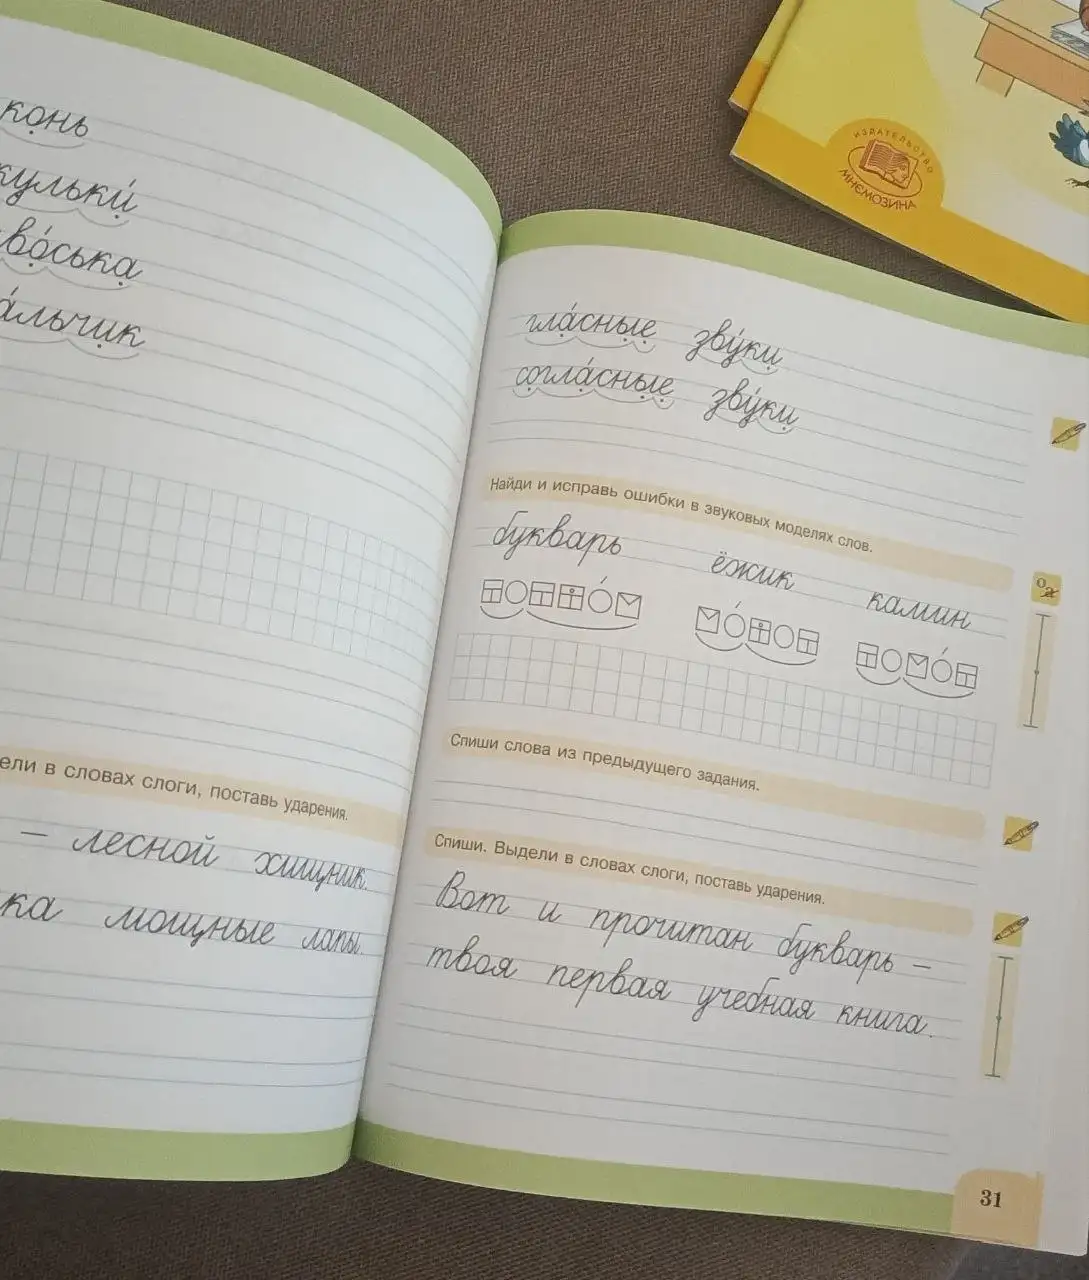 конь
кульки́
во́ська
а́льчик
ели в словах слоги, поставь ударения.
– лесной хищник.
ка мощные лапы.
ИЗДАТЕЛЬСТВО
МНЕМОЗИНА
гла́сные зву́ки
согла́сные зву́ки
Найди и исправь ошибки в звуковых моделях слов.
букварь ёжик камин
Спиши слова из предыдущего задания.
Спиши. Выдели в словах слоги, поставь ударения.
Вот и прочитан букварь –
твоя первая учебная книга.
31